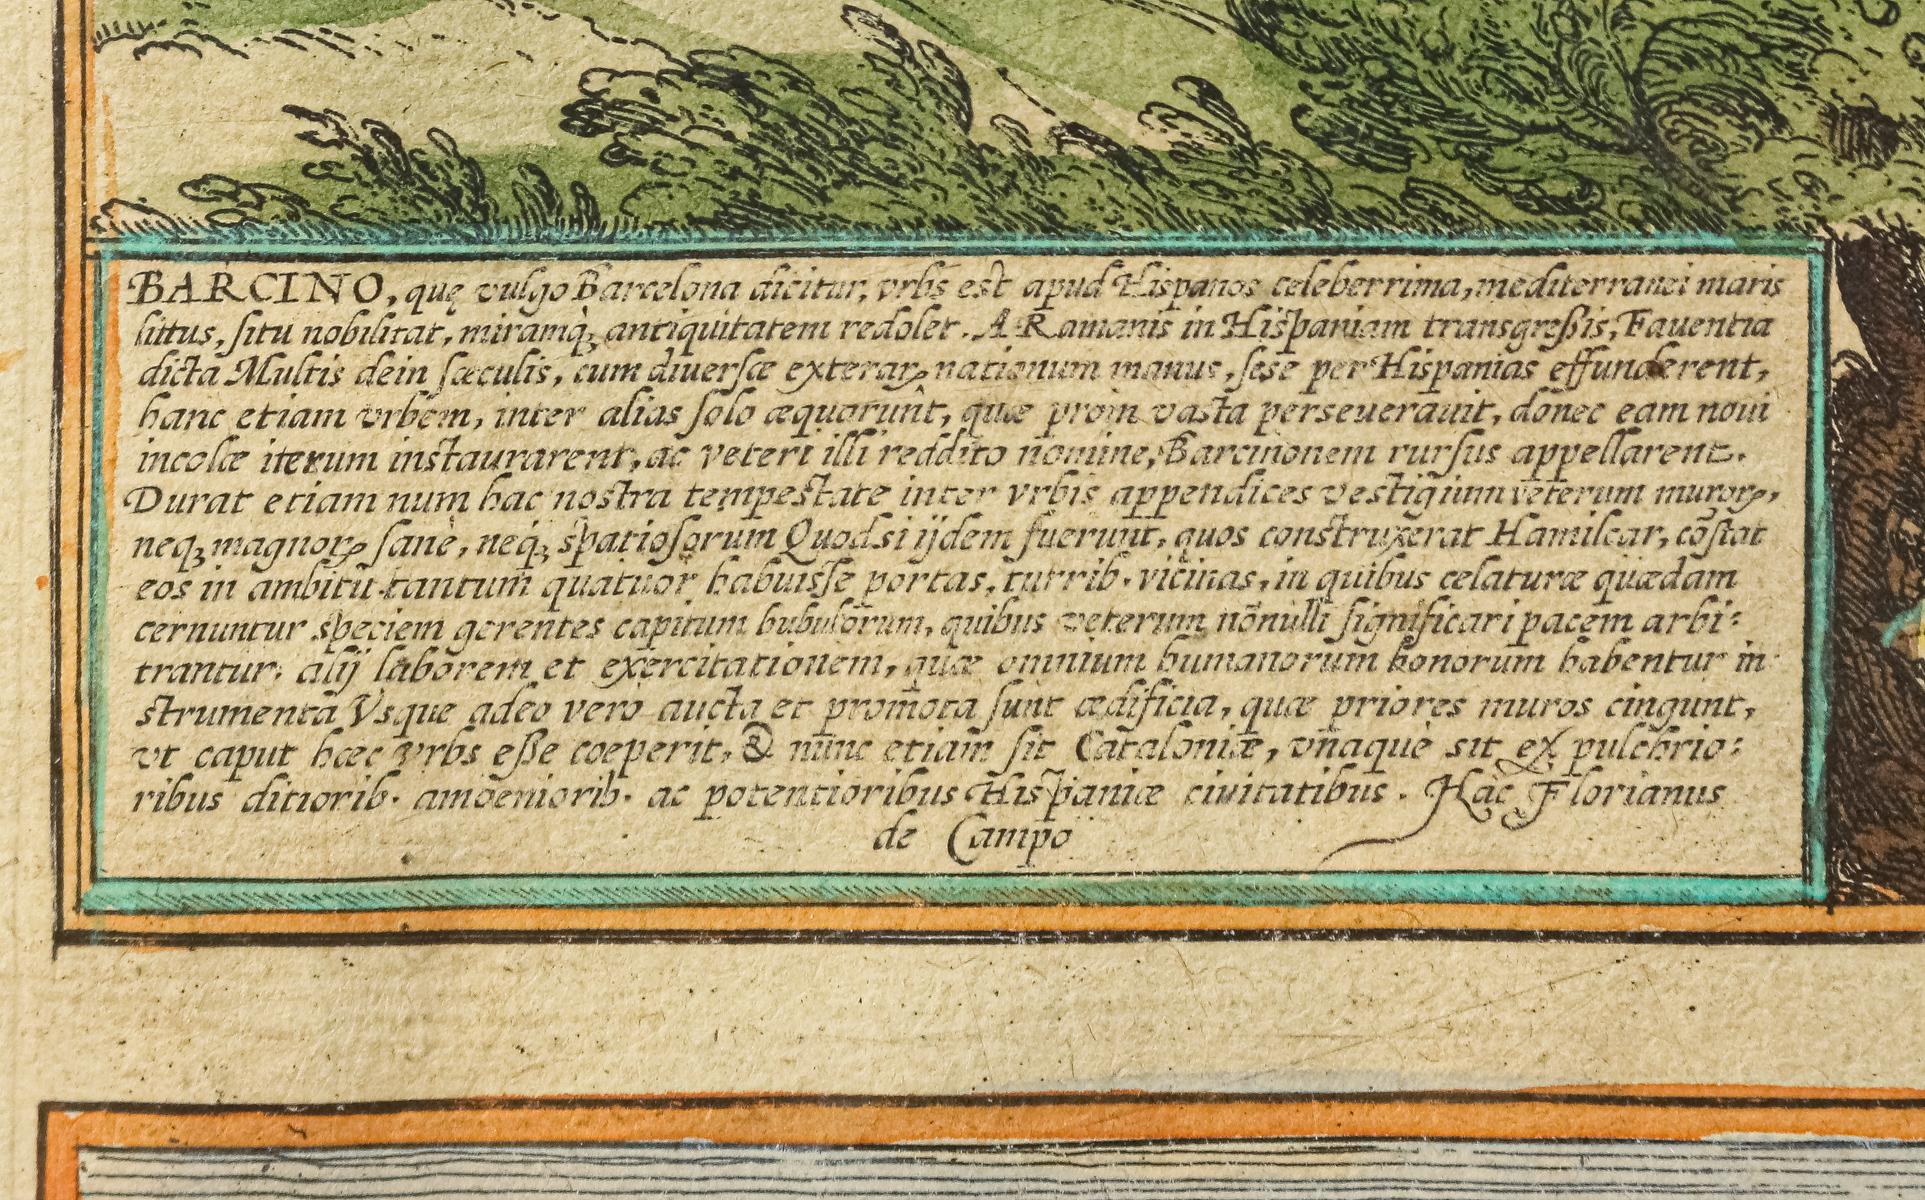 BARCINO, quę vulgo Barcelona dicitur, vrbs est apud Hispanos celeberrima, mediterranei maris
littus, situ nobilitat, miramq́ꝫ antiquitatem redolet. A Romanis in Hispaniam transgreßis, Fauentia
dicta Multis dein sæculis, cum diuersæ exteraꝝ nationum manus, sese per Hispanias effunderent,
hanc etiam vrbem, inter alias solo æquarunt, quæ proin vasta perseuerauit, donec eam noui
incolæ iterum instaurarent, ac veteri illi reddito nomine, Barcinonem rursus appellarent.
Durat etiam num hac nostra tempestate inter vrbis appendices vestigium veterum muroꝝ,
neqꝫ magnoꝝ sanè, neq́ꝫ spatiosorum Quod si ijdem fuerunt, quos construxerat Hamilcar, cõstat
eos in ambitu tantum quatuor habuisse portas, turrib. vicinas, in quibus celaturæ quædam
cernuntur speciem gerentes capitum bubulorum, quibus veterum nõnulli significari pacem arbi:
trantur: alij laborem et exercitationem, quæ omnium humanorum honorum habentur in
strumenta Vsque adeo vero aucta et promota sunt ædificia, quæ priores muros cingunt,
vt caput hæc vrbs eße coeperit, & nunc etiam sit Cataloniæ, vnaque sit ex pulchrio:
ribus ditiorib. amoeniorib. ac potentioribus Hispaniæ ciuitatibus. Hac Florianus
de Campo